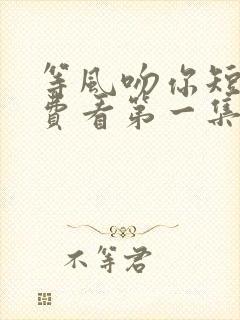 等风吻你短
费看第一集
不等君